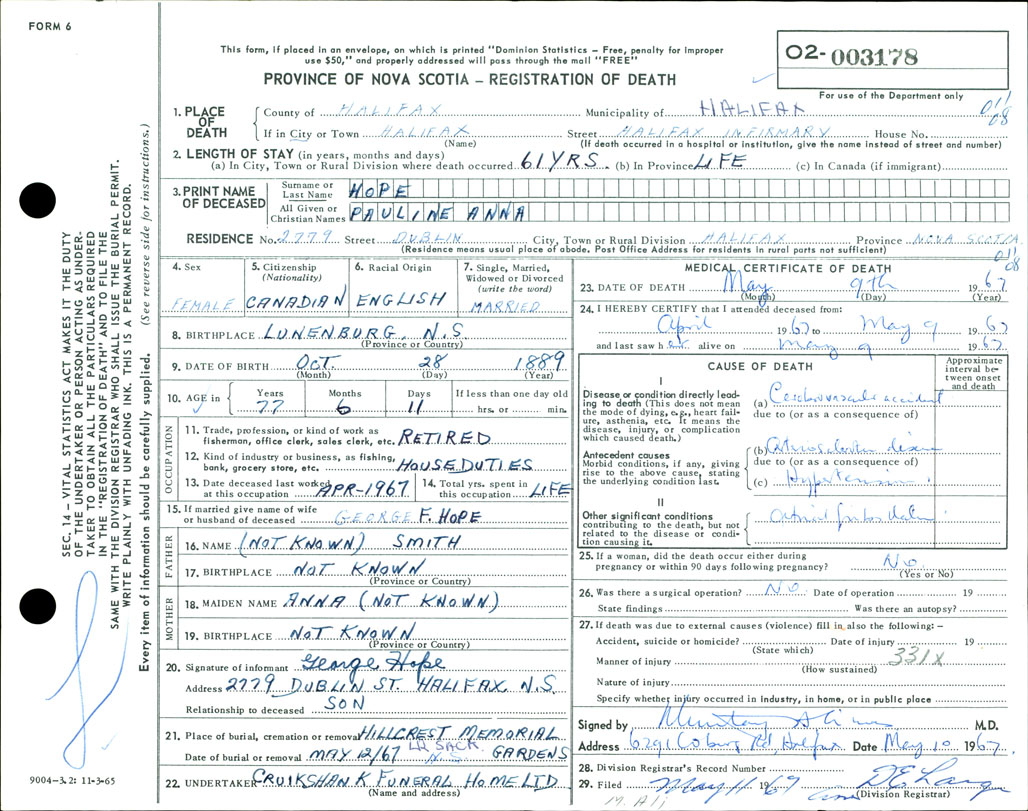 FORM 6
This form, if placed in an envelope, on which is printed "Dominion Statistics – Free, penalty for improper
use $50," and properly addressed will pass through the mail "FREE"
PROVINCE OF NOVA SCOTIA – REGISTRATION OF DEATH
02-003178
For use of the Department only
011
08
1. PLACE OF DEATH
County of HALIFAX Municipality of HALIFAX
If in City or Town HALIFAX Street HALIFAX INFIRMARY House No.
(Name) (If death occurred in a hospital or institution, give the name instead of street and number)
2. LENGTH OF STAY (in years, months and days)
(a) In City, Town or Rural Division where death occurred 61 YRS. (b) In Province LIFE (c) In Canada (if immigrant)
3. PRINT NAME OF DECEASED
Surname or Last Name HOPE
All Given or Christian Names PAULINE ANNA
RESIDENCE No. 2779 Street DUBLIN City, Town or Rural Division HALIFAX Province NOVA SCOTIA
(Residence means usual place of abode. Post Office Address for residents in rural parts not sufficient)
011
08
4. Sex FEMALE
5. Citizenship (Nationality) CANADIAN
6. Racial Origin ENGLISH
7. Single, Married, Widowed or Divorced (write the word) MARRIED
8. BIRTHPLACE LUNENBURG, N.S.
(Province or Country)
9. DATE OF BIRTH OCT. 28 1889
(Month) (Day) (Year)
10. AGE in Years Months Days If less than one day old
77 6 11 hrs. or min.
OCCUPATION
11. Trade, profession, or kind of work as
fisherman, office clerk, sales clerk, etc. RETIRED
12. Kind of industry or business, as fishing,
bank, grocery store, etc. HOUSE DUTIES
13. Date deceased last worked at this occupation APR-1967
14. Total yrs. spent in this occupation LIFE
15. If married give name of wife
or husband of deceased GEORGE F. HOPE
FATHER
16. NAME (NOT KNOWN) SMITH
17. BIRTHPLACE NOT KNOWN
(Province or Country)
MOTHER
18. MAIDEN NAME ANNA (NOT KNOWN)
19. BIRTHPLACE NOT KNOWN
(Province or Country)
20. Signature of informant George Hope
Address 2779 DUBLIN ST. HALIFAX, N.S.
Relationship to deceased SON
21. Place of burial, cremation or removal HILLCREST MEMORIAL
GARDENS
Date of burial or removal MAY 12/67 LR SACK. N.S.
22. UNDERTAKER CRUIKSHANK FUNERAL HOME LTD
(Name and address)
MEDICAL CERTIFICATE OF DEATH
23. DATE OF DEATH May 9th 1967
(Month) (Day) (Year)
24. I HEREBY CERTIFY that I attended deceased from:
April 1967 to May 9 1967
and last saw her alive on May 9 1967
CAUSE OF DEATH
Approximate interval between onset and death
I
Disease or condition directly leading to death (This does not mean the mode of dying, e.g., heart failure, asthenia, etc. It means the disease, injury, or complication which caused death.)
(a) Cerebrovascular accident
due to (or as a consequence of)
Antecedent causes
Morbid conditions, if any, giving rise to the above cause, stating the underlying condition last.
(b)
due to (or as a consequence of)
(c) Hypertension
II
Other significant conditions
contributing to the death, but not related to the disease or condition causing it.
25. If a woman, did the death occur either during
pregnancy or within 90 days following pregnancy? No
(Yes or No)
26. Was there a surgical operation? No Date of operation 19
State findings Was there an autopsy?
27. If death was due to external causes (violence) fill in also the following: –
Accident, suicide or homicide? Date of injury 19
(State which)
Manner of injury 331X
(How sustained)
Nature of injury
Specify whether injury occurred in industry, in home, or in public place
Signed by M.D.
Address 6291 Coburg Rd, Halifax Date May 10 1967
28. Division Registrar's Record Number
29. Filed May 11 1967
(Division Registrar)
SEC. 14 – VITAL STATISTICS ACT MAKES IT THE DUTY
OF THE UNDERTAKER OR PERSON ACTING AS UNDER-
TAKER TO OBTAIN ALL THE PARTICULARS REQUIRED
IN THE "REGISTRATION OF DEATH" AND TO FILE THE
SAME WITH THE DIVISION REGISTRAR WHO SHALL ISSUE THE BURIAL PERMIT.
WRITE PLAINLY WITH UNFADING INK. THIS IS A PERMANENT RECORD.
Every item of information should be carefully supplied. (See reverse side for instructions.)
9004-3.2: 11-3-65